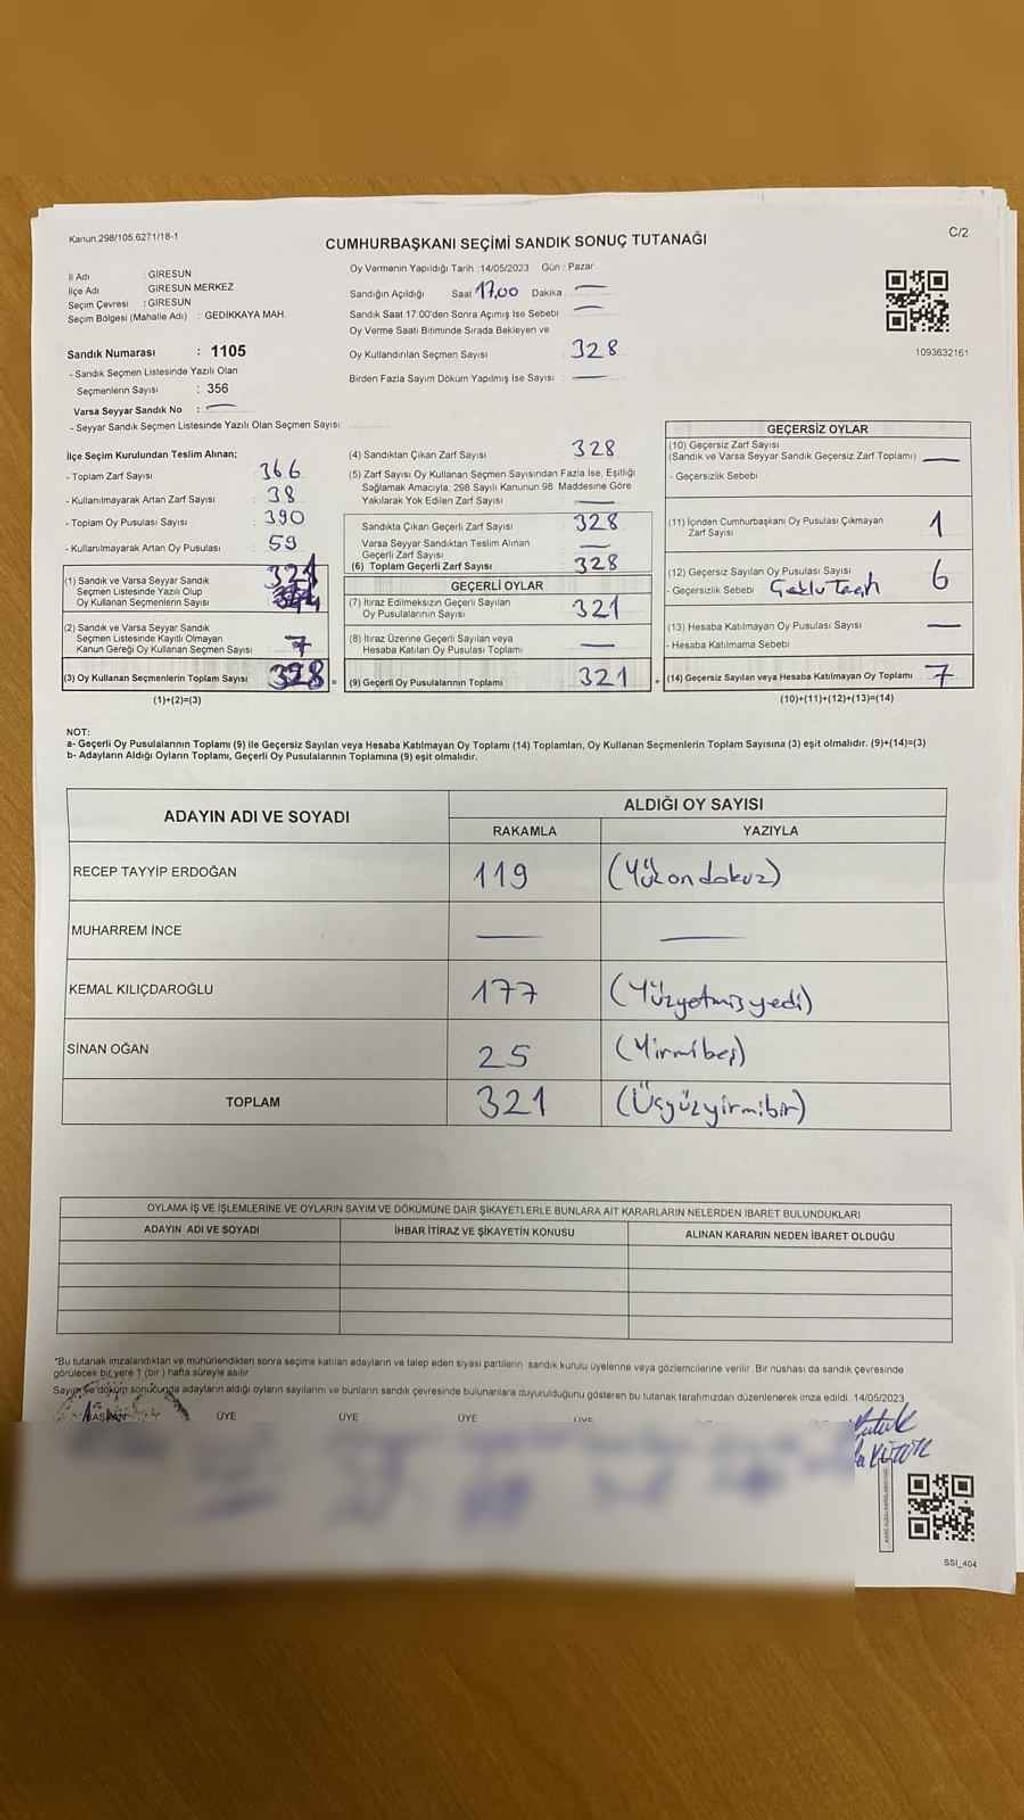 Kanun.298/105.6271/18-1
CUMHURBAŞKANI SEÇİMİ SANDIK SONUÇ TUTANAĞI
C/2
İl Adı GİRESUN
İlçe Adı GİRESUN MERKEZ
Seçim Çevresi : GİRESUN
Seçim Bölgesi (Mahalle Adı) : GEDİKKAYA MAH.
Sandık Numarası : 1105
- Sandık Seçmen Listesinde Yazılı Olan
Seçmenlerin Sayısı : 356
Varsa Seyyar Sandık No :
- Seyyar Sandık Seçmen Listesinde Yazılı Olan Seçmen Sayısı
Oy Vermenin Yapıldığı Tarih :14/05/2023 Gün : Pazar
Sandığın Açıldığı Saat 17.00 Dakika
Sandık Saat 17.00'den Sonra Açımış İse Sebebi
Oy Verme Saati Bitiminde Sırada Bekleyen ve
Oy Kullandırılan Seçmen Sayısı 328
Birden Fazla Sayım Döküm Yapılmış İse Sayısı :
1093632161
İlçe Seçim Kurulundan Teslim Alınan;
- Toplam Zarf Sayısı 366
- Kullanılmayarak Artan Zarf Sayısı 38
- Toplam Oy Pusulası Sayısı 390
- Kullanılmayarak Artan Oy Pusulası 59
(1) Sandık ve Varsa Seyyar Sandık
Seçmen Listesinde Yazılı Olup
Oy Kullanan Seçmenlerin Sayısı 321
(2) Sandık ve Varsa Seyyar Sandık
Seçmen Listesinde Kayıtlı Olmayan
Kanun Gereği Oy Kullanan Seçmen Sayısı 7
(3) Oy Kullanan Seçmenlerin Toplam Sayısı 328
(1)+(2)=(3)
(4) Sandıktan Çıkan Zarf Sayısı 328
(5) Zarf Sayısı Oy Kullanan Seçmen Sayısından Fazla İse, Eşitliği
Sağlamak Amacıyla, 298 Sayılı Kanunun 98. Maddesine Göre
Yakılarak Yok Edilen Zarf Sayısı
Sandıkta Çıkan Geçerli Zarf Sayısı 328
Varsa Seyyar Sandıktan Teslim Alınan
Geçerli Zarf Sayısı
(6) Toplam Geçerli Zarf Sayısı 328
GEÇERLİ OYLAR
(7) İtiraz Edilmeksizin Geçerli Sayılan
Oy Pusulalarının Sayısı 321
(8) İtiraz Üzerine Geçerli Sayılan veya
Hesaba Katılan Oy Pusulası Toplamı
(9) Geçerli Oy Pusulalarının Toplamı 321
GEÇERSİZ OYLAR
(10) Geçersiz Zarf Sayısı
(Sandık ve Varsa Seyyar Sandık Geçersiz Zarf Toplamı)
- Geçersizlik Sebebi
(11) İçinden Cumhurbaşkanı Oy Pusulası Çıkmayan
Zarf Sayısı 1
(12) Geçersiz Sayılan Oy Pusulası Sayısı 6
- Geçersizlik Sebebi
(13) Hesaba Katılmayan Oy Pusulası Sayısı
- Hesaba Katılmama Sebebi
(14) Geçersiz Sayılan veya Hesaba Katılmayan Oy Toplamı 7
(10)+(11)+(12)+(13)=(14)
NOT:
a- Geçerli Oy Pusulalarının Toplamı (9) ile Geçersiz Sayılan veya Hesaba Katılmayan Oy Toplamı (14) Toplamları, Oy Kullanan Seçmenlerin Toplam Sayısına (3) eşit olmalıdır. (9)+(14)=(3)
b- Adayların Aldığı Oyların Toplamı, Geçerli Oy Pusulalarının Toplamına (9) eşit olmalıdır.
ADAYIN ADI VE SOYADI
ALDIĞI OY SAYISI
RAKAMLA YAZIYLA
RECEP TAYYİP ERDOĞAN 119 (Yüzondokuz)
MUHARREM İNCE
KEMAL KILIÇDAROĞLU 177 (Yüzyetmişyedi)
SİNAN OĞAN 25 (Yirmibeş)
TOPLAM 321 (Üçyüzyirmibir)
OYLAMA İŞ VE İŞLEMLERİNE VE OYLARIN SAYIM VE DÖKÜMÜNE DAİR ŞİKAYETLERLE BUNLARA AİT KARARLARIN NELERDEN İBARET BULUNDUKLARI
ADAYIN ADI VE SOYADI İHBAR İTİRAZ VE ŞİKAYETİN KONUSU ALINAN KARARIN NEDEN İBARET OLDUĞU
*Bu tutanak imzalandıktan ve mühürlendikten sonra seçime katılan adayların ve talep eden siyasi partilerin sandık kurulu üyelerine veya gözlemcilerine verilir. Bir nüshası da sandık çevresinde
görülecek bir yere 1 (bir) hafta süreyle asılır
Sayım ve döküm sonucunda adayların aldığı oyların sayılarını ve bunların sandık çevresinde bulunanlara duyurulduğunu gösteren bu tutanak tarafımızdan düzenlenerek imza edildi. 14/05/2023
BAŞKAN ÜYE ÜYE ÜYE ÜYE
SSI_404